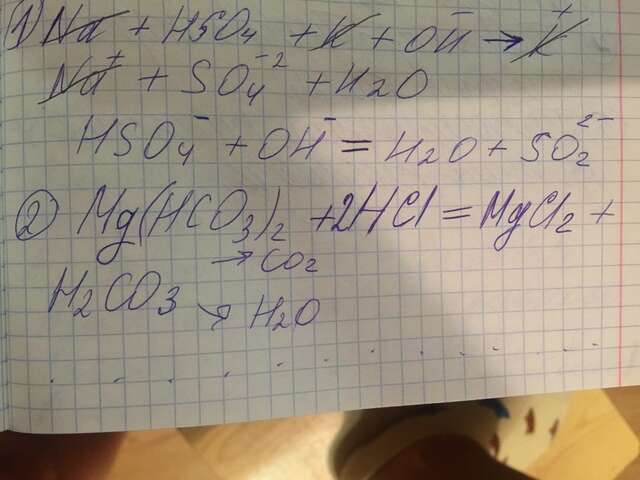 1) Na + HSO₄ + K + OH⁻ → K⁺
Na⁺ + SO₄⁻² + H₂O
HSO₄⁻ + OH⁻ = H₂O + SO₂²⁻
2) Mg(HCO₃)₂ + 2HCl = MgCl₂ +
→ CO₂
H₂CO₃ → H₂O